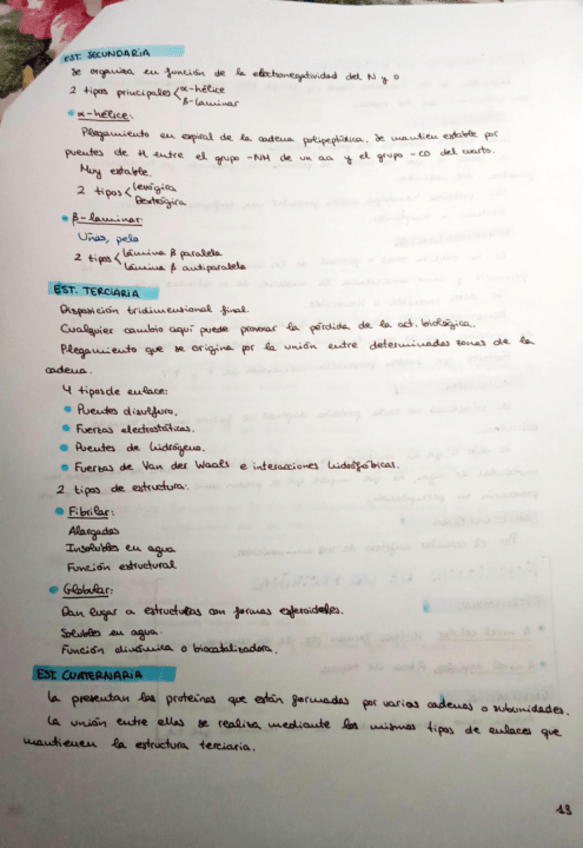 EST. SECUNDARIA
Se organiza en función de la electronegatividad del N y O
2 tipos principales < α-hélice
β-laminar
• α-hélice:
Plegamiento en espiral de la cadena polipeptídica. Se mantien estable por
puentes de H entre el grupo -NH de un aa y el grupo -CO del cuarto.
Muy estable.
2 tipos < Levógira
Dextrógira
• β-laminar:
Uñas, pelo
2 tipos < Lámina β paralela
Lámina β antiparalela
EST. TERCIARIA
Disposición tridimensional final.
Cualquier cambio aquí puede provocar la pérdida de la act. biológica.
Plegamiento que se origina por la unión entre determinadas zonas de la
cadena.
4 tipos de enlace:
• Puentes disulfuro.
• Fuerzas electrostáticas.
• Puentes de hidrógeno.
• Fuerzas de Van der Waals e interacciones hidrofóbicas.
2 tipos de estructura:
• Fibrilar:
Alargadas
Insolubles en agua
Función estructural
• Globular:
Dan lugar a estructuras con formas esferoidales.
Solubles en agua.
Función dinámica o biocatalizadora.
EST. CUATERNARIA
La presentan las proteínas que están formadas por varias cadenas o subunidades.
La unión entre ellas se realiza mediante los mismos tipos de enlaces que
mantienen la estructura terciaria.
13